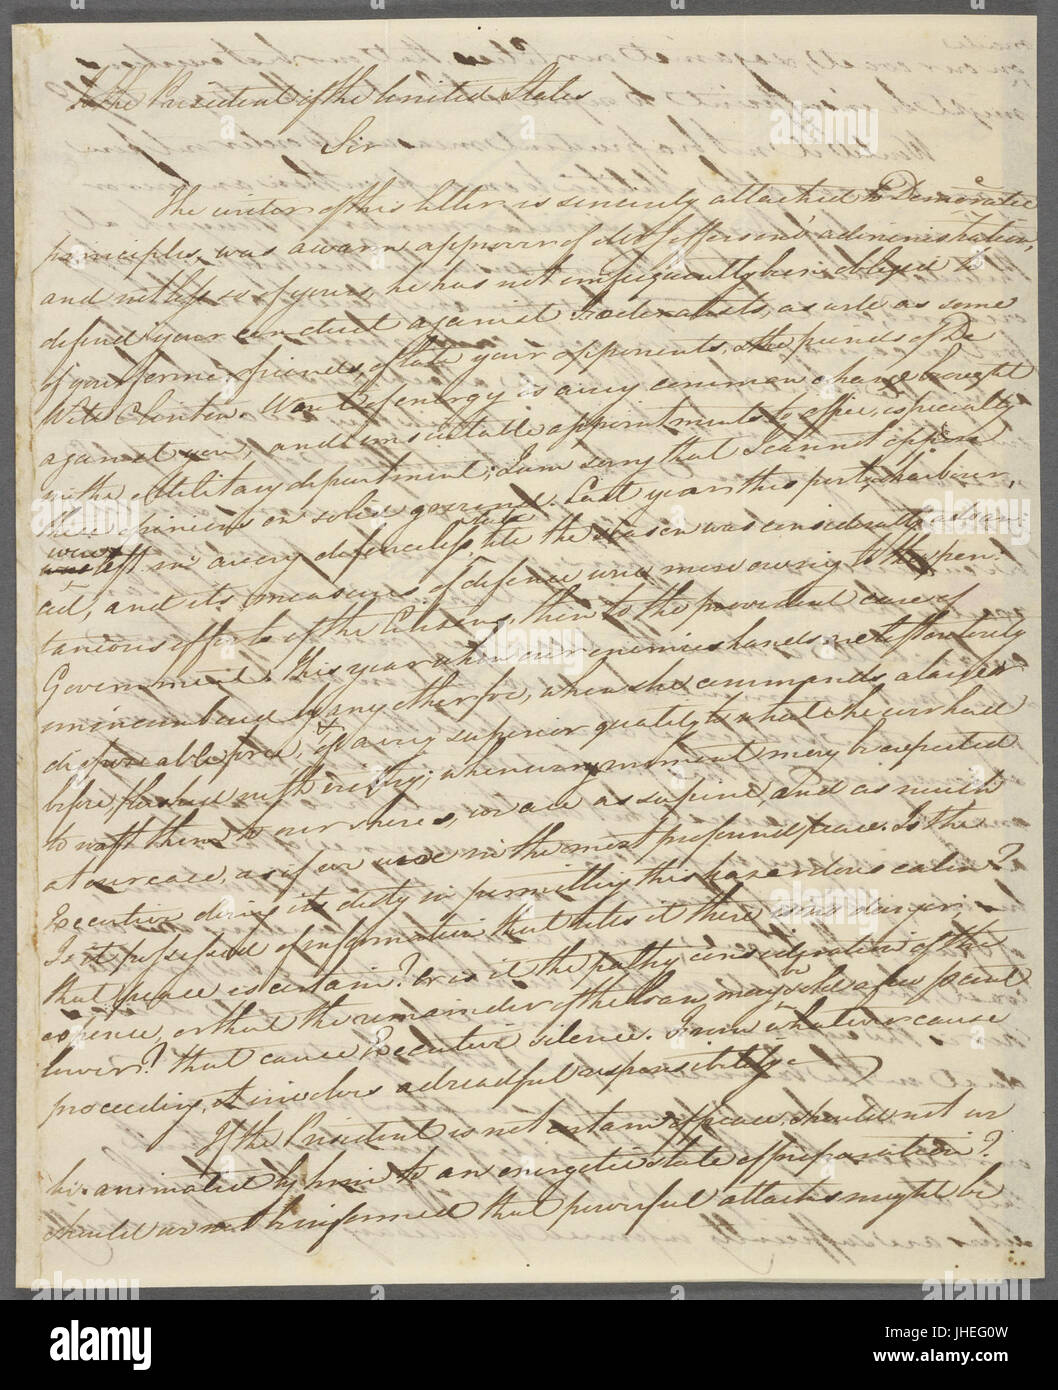 To the President of the United States
Sir
The writer of this letter is sincerely attached to Democratic
principles, was a warm approver of Mr Jefferson's administration,
and not less so of yours, he has not unfrequently been obliged to
defend your conduct against Federalists, as well as some
of your former friends, of late your opponents, the friends of De
Witt Clinton. Want of energy is a very common charge brought
against you, and unsuitable appointments to office, especially
in the Military department; I am sorry that I cannot oppose
these opinions on solid ground. Last year this port, & harbour,
were left in a very defenceless state till the season was considerably advan-
ced, and its measures of defence were more owing to the spon-
taneous efforts of the Citizens, than to the provident care of
Government. This year when our enemies hands, are left entirely
unincumbered by any other foe, when she commands a larger
disposable force, & of a very superior quality to what she ever had
before flushed with victory; when every moment may be expected
to waft them to our shores, we are as supine, and as much
at our ease, as if we were in the most profound peace. Is the
Executive doing its duty in permitting this hazardous calm?
Is it possessed of information that tells it there is no danger,
that peace is certain? Or is it the pelthy consideration of the
expence, or that the remainder of the loan, may be sold a few per cent
lower? that cause Executive silence. From whatever cause
proceeding, it involves a dreadful responsibility.
If the President is not certain of peace, should not we
be animated by him to an energetic state of preparation?
should we not be informed that powerful attacks might be
alamy
Image ID: JHEG0W
www.alamy.com